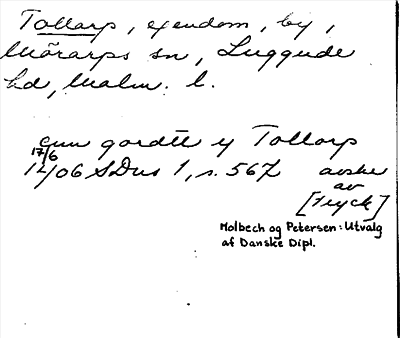 Tollarp, egendom, by,
Mörarps sn, Luggude
hd, Malm. l.
een gordtt y Tollarp
17/6
12/06 SDns 1, s. 567 avskr
av
[tryck]
Molbech og Petersen: Utvalg
af Danske Dipl.